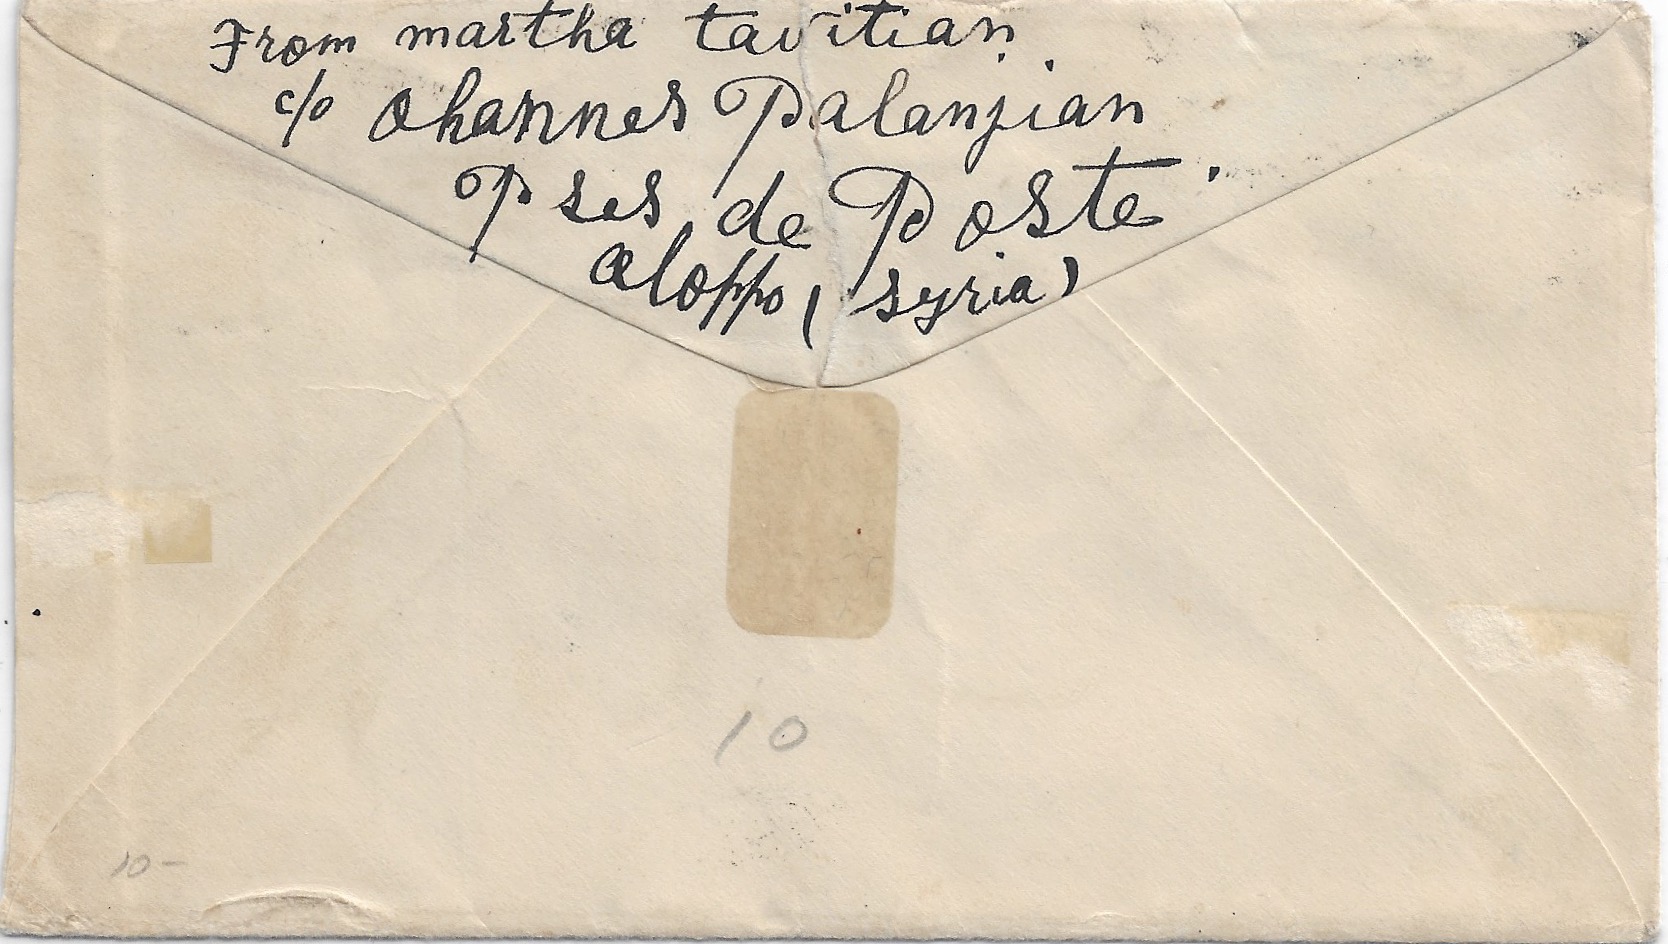 From martha tavitian
c/o Ohannes Palanjian
Pses de Poste
Aloppo (Syria)
10
10-